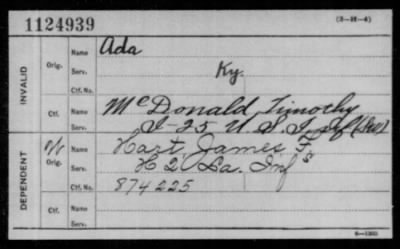 1124939
(3-H-4)
INVALID
Orig.
Name Ada
Serv. Ky.
Ctf. No.
Ctf.
Name McDonald, Timothy
Serv. I-25 U.S. Inf
DEPENDENT
Orig.
Name Hart, James F
Serv. H 2 La. Inf
Ctf. No. 874225
Ctf.
Name
Serv.